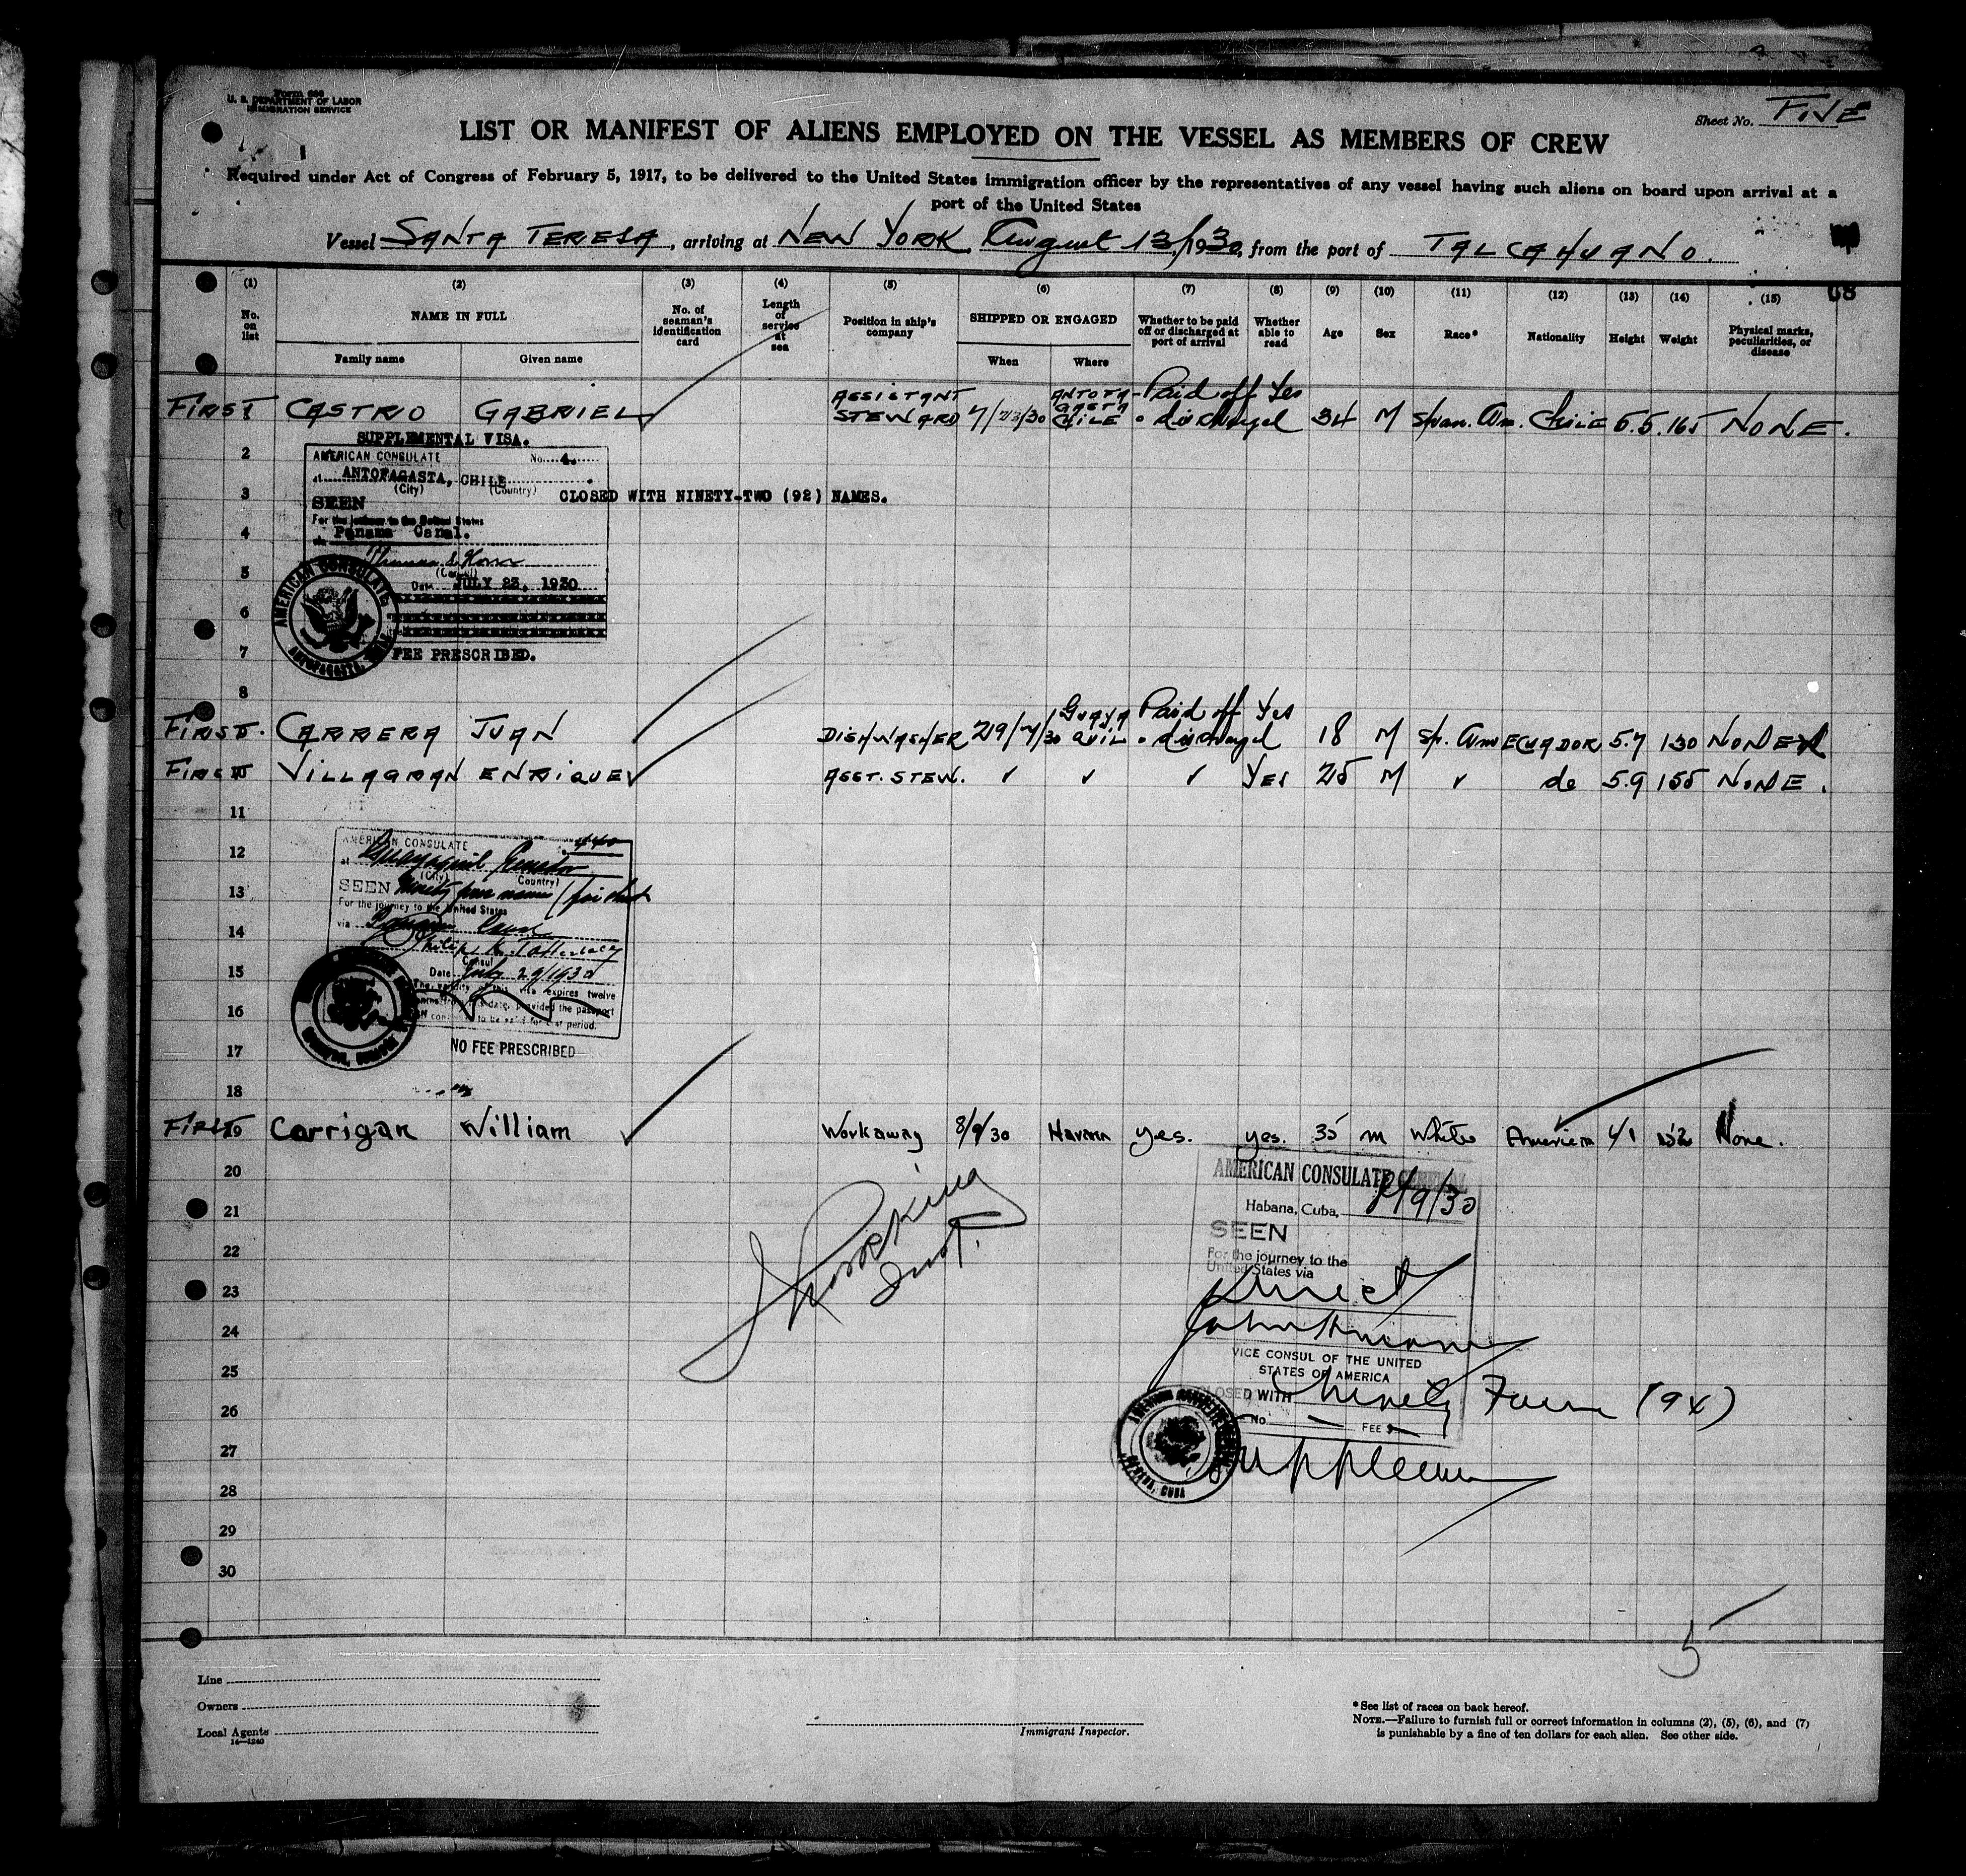 Form 680
U. S. DEPARTMENT OF LABOR
IMMIGRATION SERVICE
Sheet No. FIVE
LIST OR MANIFEST OF ALIENS EMPLOYED ON THE VESSEL AS MEMBERS OF CREW
Required under Act of Congress of February 5, 1917, to be delivered to the United States immigration officer by the representatives of any vessel having such aliens on board upon arrival at a
port of the United States
Vessel SANTA TERESA, arriving at NEW YORK August 13, 1930, from the port of TALCAHUANO.
68
(1) (2) (3) (4) (5) (6) (7) (8) (9) (10) (11) (12) (13) (14) (15)
No. on list
NAME IN FULL
Family name Given name
No. of seaman's identification card
Length of service at sea
Position in ship's company
SHIPPED OR ENGAGED
When Where
Whether to be paid off or discharged at port of arrival
Whether able to read
Age
Sex
Race*
Nationality
Height
Weight
Physical marks, peculiarities, or disease
FIRST 1 CASTRO GABRIEL ASSISTANT STEWARD 7/23/30 ANTOFAGASTA CHILE Paid off discharged Yes 34 M Span. Am. CHILE 5.5. 165 NONE.
SUPPLEMENTAL VISA.
2
AMERICAN CONSULATE No. 4.
at ANTOFAGASTA, CHILE.
(City) (Country)
3
CLOSED WITH NINETY-TWO (92) NAMES.
SEEN
For the journey to the United States
4
via Panama Canal.
5
(Consul)
Date JULY 23, 1930
6
AMERICAN CONSULATE
ANTOFAGASTA,
7
FEE PRESCRIBED.
8
FIRST CARRERA JUAN DISHWASHER 29/7/30 GUAYAQUIL Paid off discharged Yes 18 M Sp. Am ECUADOR 5.7 130 NONE
FIRST 10 VILLAGRAN ENRIQUE ASST. STEW. ✓ ✓ ✓ YES 25 M ✓ do 5.9 155 NONE.
11
12
AMERICAN CONSULATE
at Guayaquil Ecuador
(City) Country)
13
SEEN Ninety four names
For the journey to the United States
14
via Panama Canal
Consul
15
Date July 29/1930
The validity of this visa expires twelve
months from this date, provided the passport
16
continues to be valid for that period.
17
NO FEE PRESCRIBED
18
FIRST 19 Corrigan William Workaway 8/9/30 Havana yes. yes. 35 m White American 6/1 152 None.
20
AMERICAN CONSULATE GENERAL
21
Habana, Cuba, 8/9/30
Working
SEEN
22
For the journey to the
United States via
23
Direct
24
VICE CONSUL OF THE UNITED
STATES OF AMERICA
25
CLOSED WITH Ninety Four (94)
26
No. FEE $
27
28
HABANA, CUBA
29
30
5
Line
Owners
Local Agents
14—1240
Immigrant Inspector.
*See list of races on back hereof.
NOTE.—Failure to furnish full or correct information in columns (2), (5), (6), and (7)
is punishable by a fine of ten dollars for each alien. See other side.